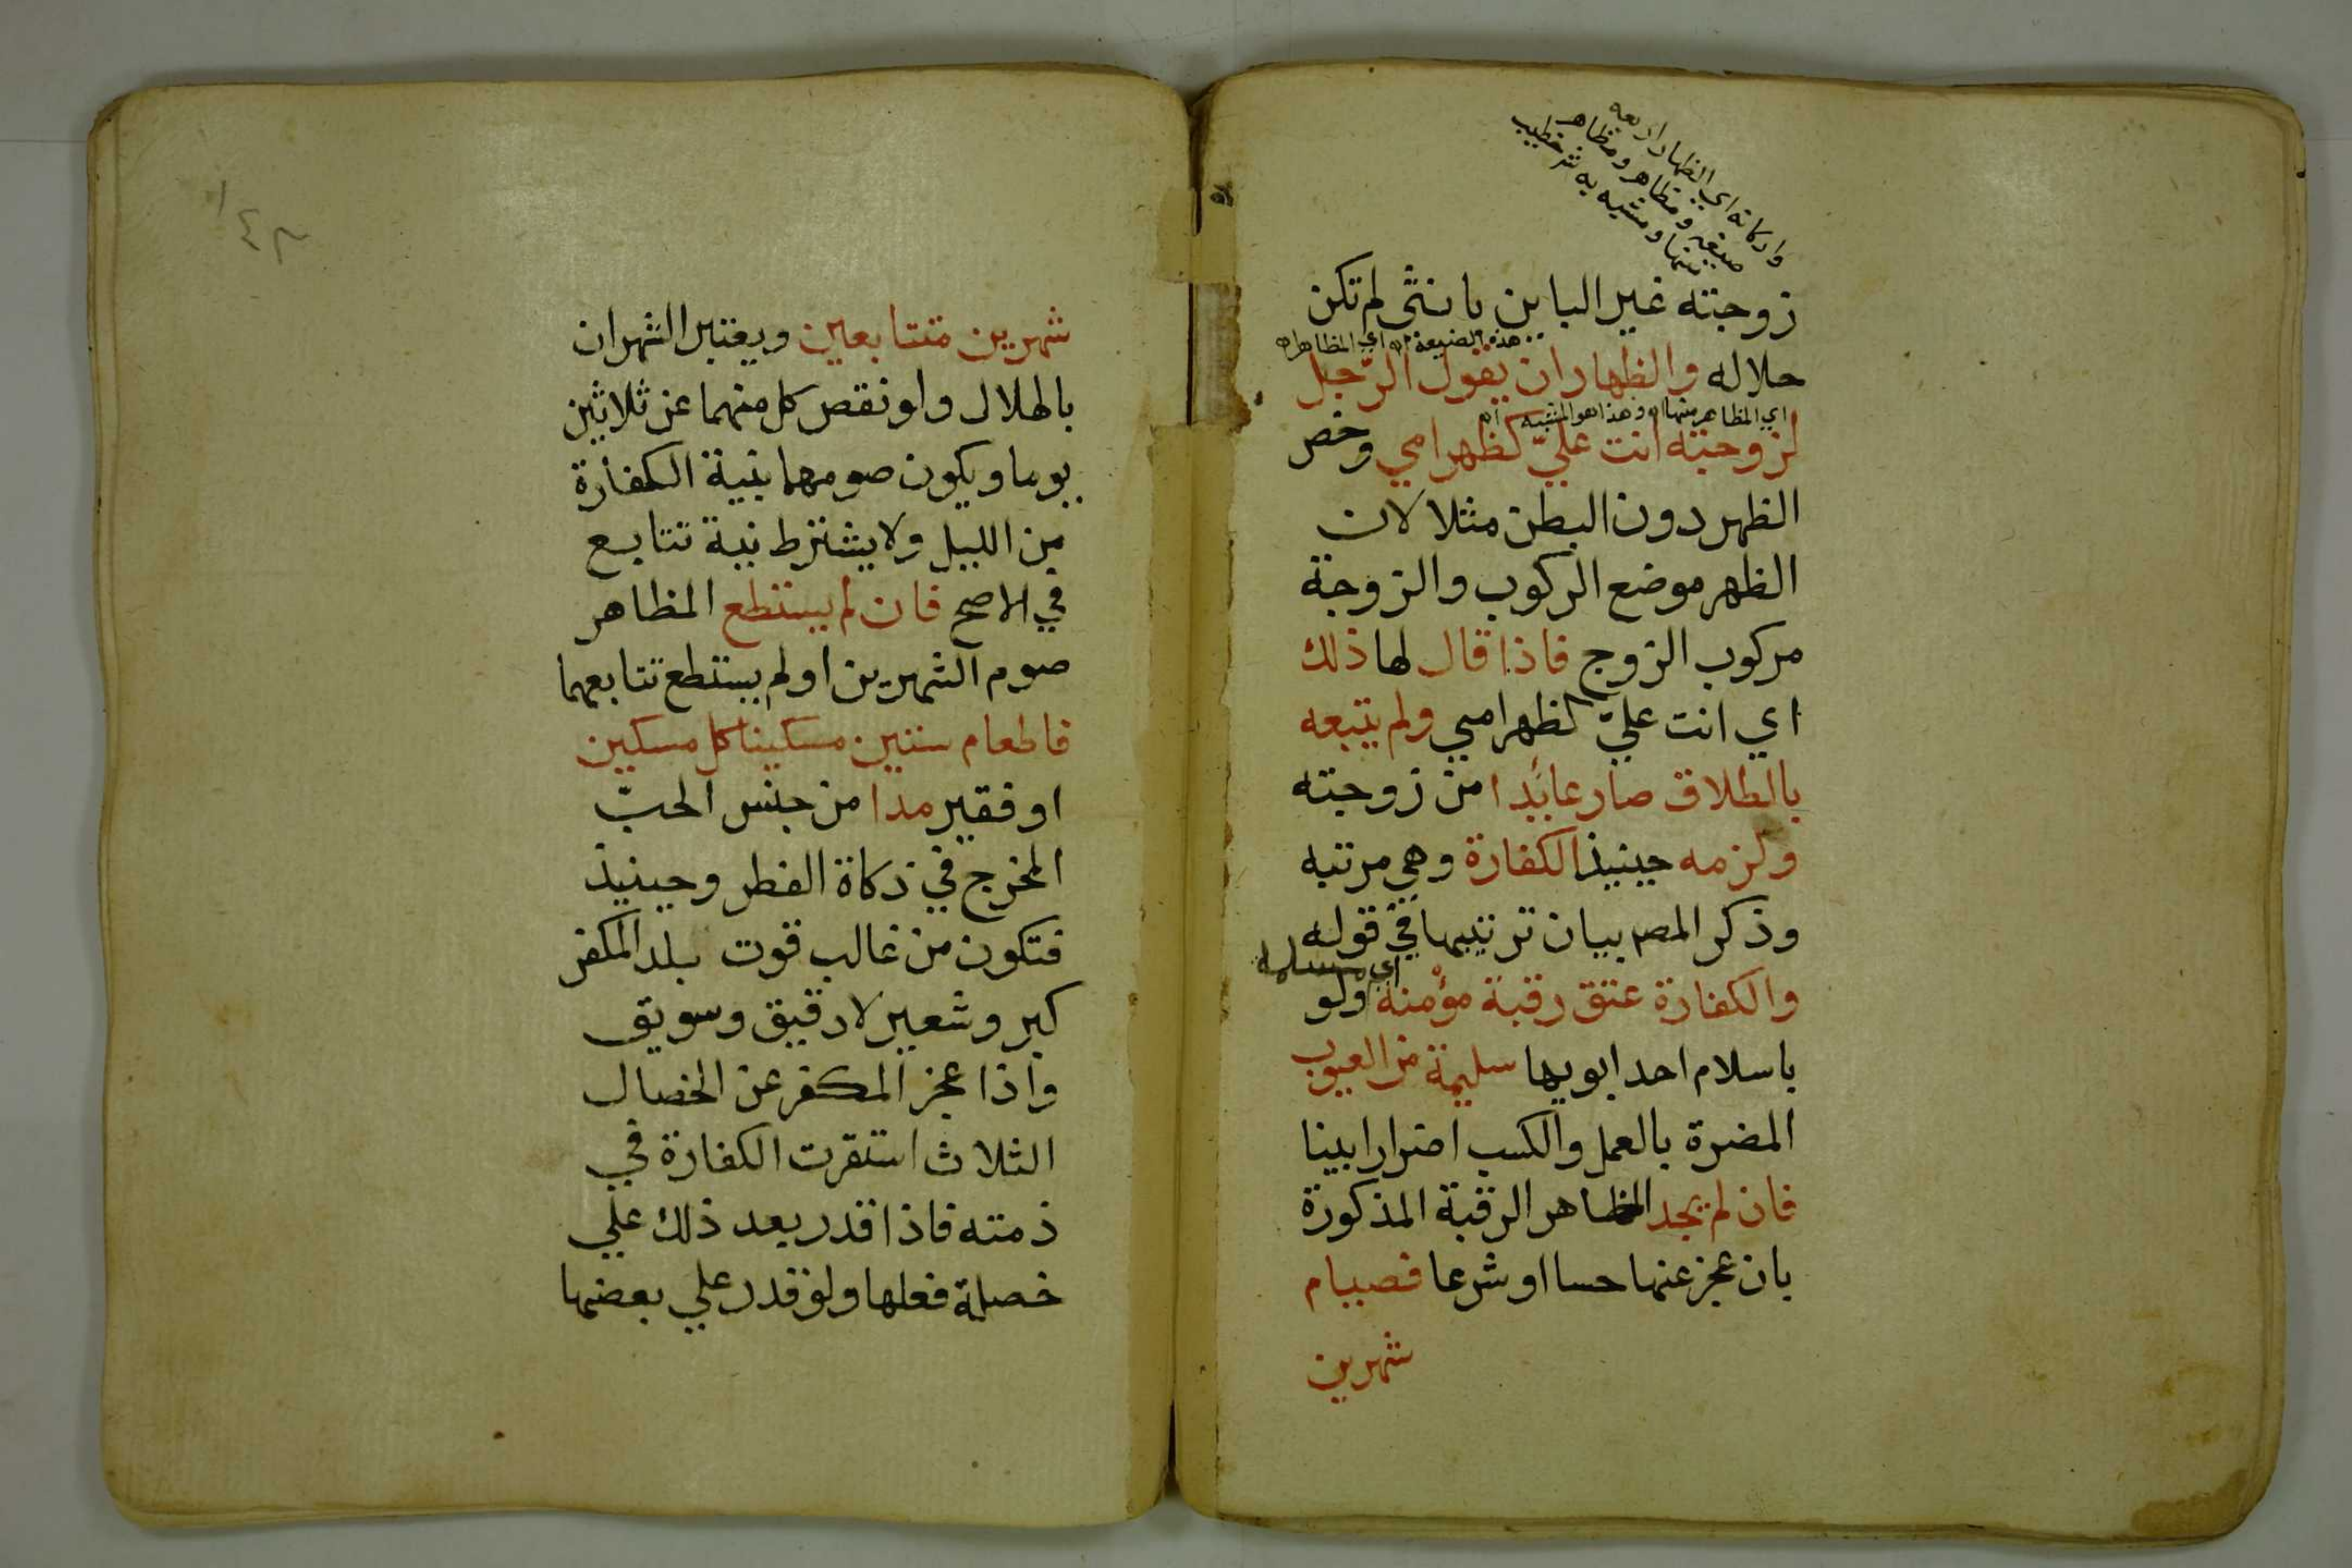 واركانه اي الظهار اربعه
صيغه ومظاهر ومظاهر
منها ومشبه به شر خطيب
زوجته غير الباين بانثى لم تكن
هذه الصيغة اه اي المظاهر اه
حلاله والظهار ان يقول الرّجل
اي المظاهر منها اه وهذا هو المشبه اه
لزوجته انت عليّ كظهر امي وخص
الظهر دون البطن مثلا لان
الظهر موضع الركوب والزوجة
مركوب الزوج فاذا قال لها ذلك
اي انت عليّ كظهر امي ولم يتبعه
بالطلاق صار عائدا من زوجته
ولزمه حينيذ الكفارة وهي مرتبه
وذكر المصم بيان ترتيبها في قوله
اي مسلمه
والكفارة عتق رقبة مؤمنة ولو
باسلام احد ابويها سليمة من العيوب
المضرة بالعمل والكسب اضرارا بينا
فان لم يجد المظاهر الرقبة المذكورة
بان عجز عنها حسا او شرعا فصيام
شهرين
١٤٢
شهرين متتابعين ويعتبر الشهران
بالهلال ولو نقص كل منهما عن ثلاثين
يوما ويكون صومهما بنية الكفارة
من الليل ولا يشترط نية تتابع
في الاصح فان لم يستطع المظاهر
صوم الشهرين او لم يستطع تتابعهما
فاطعام ستين مسكينا كل مسكين
او فقير مدا من جنس الحبّ
المخرج في زكاة الفطر وحينيذ
فتكون من غالب قوت بلد المكفر
كبر وشعير لا دقيق وسويق
واذا عجز المكفر عن الخصال
الثلاث استقرت الكفارة في
ذمته فاذا قدر بعد ذلك علي
خصلة فعلها ولو قدر علي بعضها